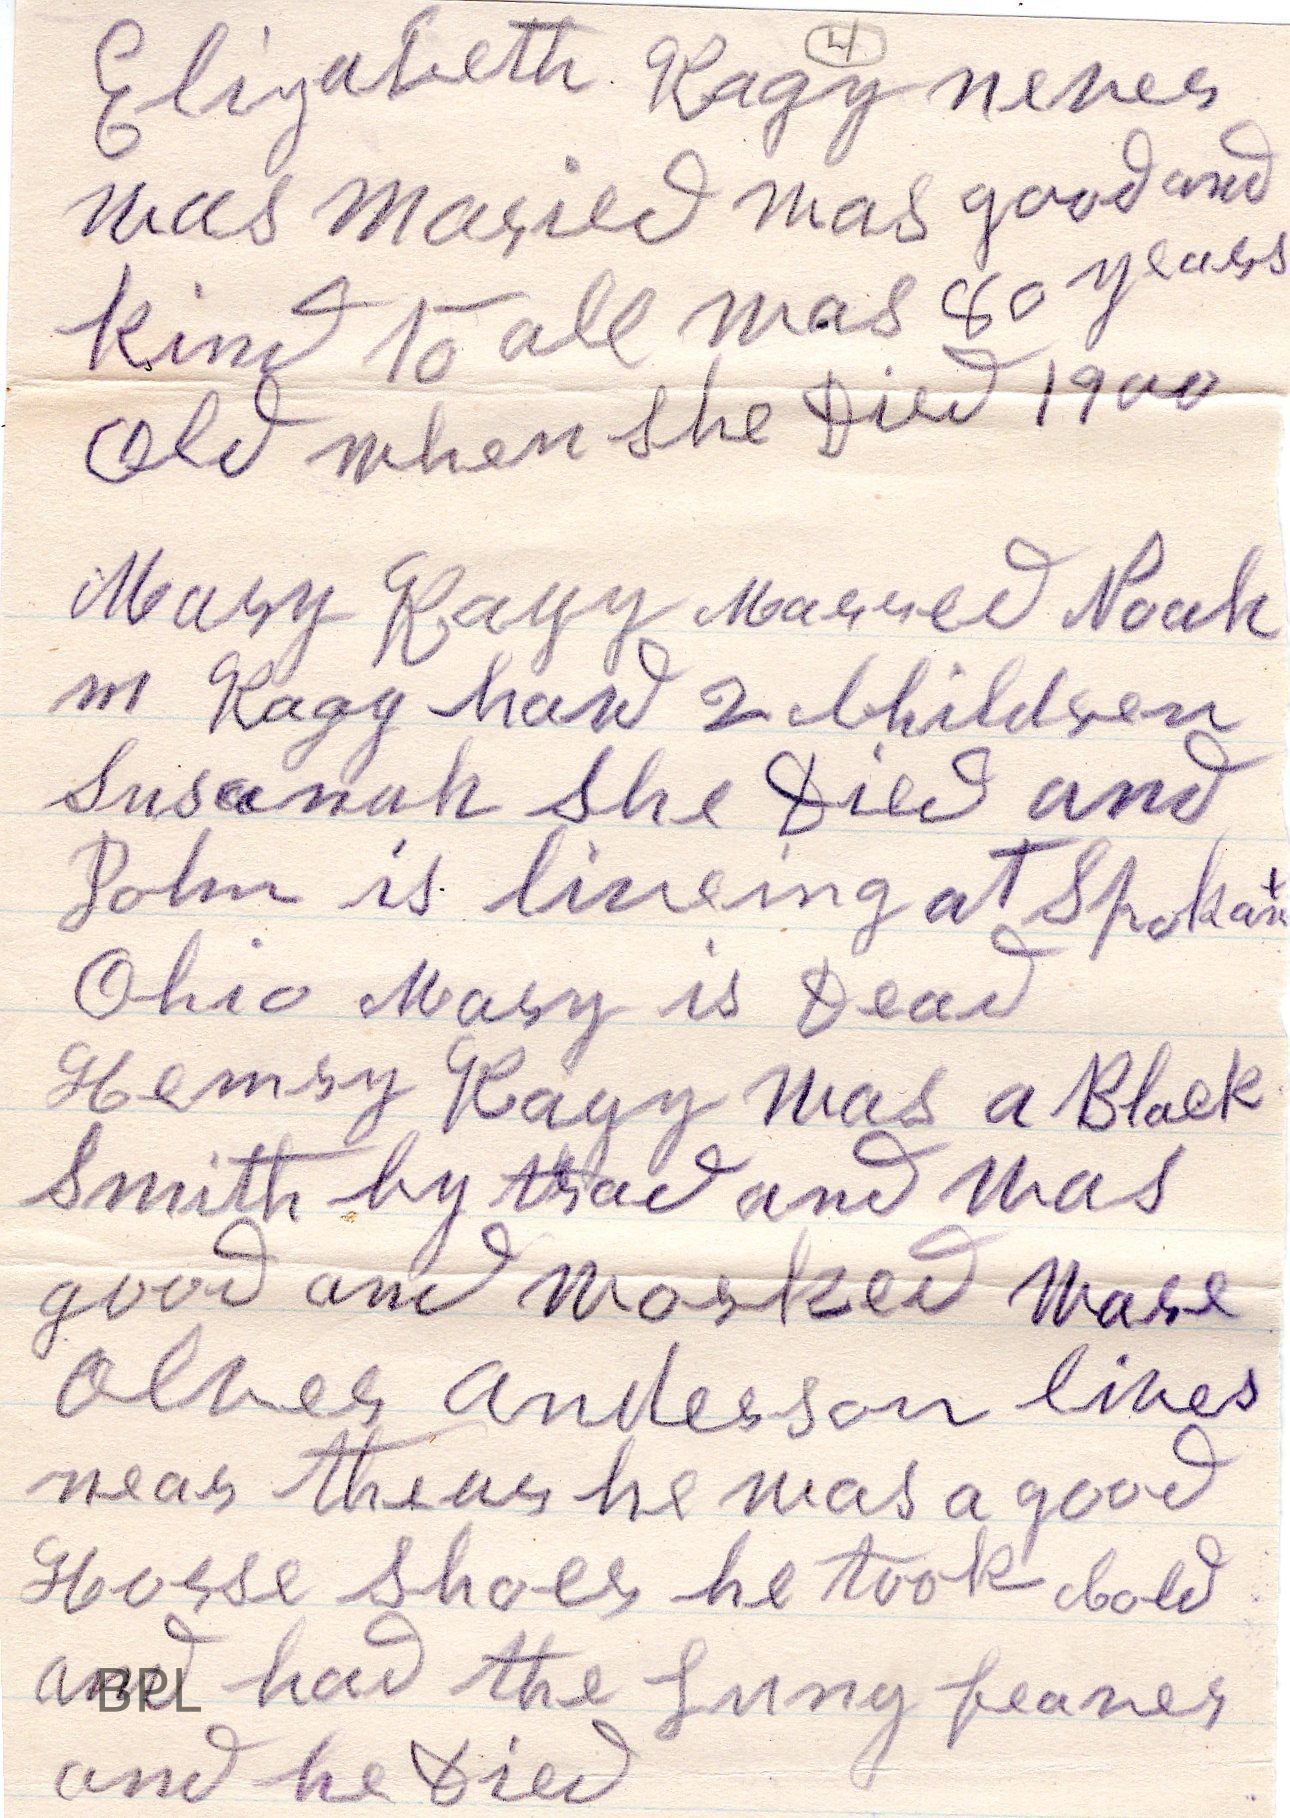 4
Elizabeth Kagy never
was maried was good and
kind to all was 80 years
old when she Died 1900
Mary Kagy Marred Noah
m Kagy had 2 Children
Susanah she Died and
John is liveing at Spokan
Ohio Mary is Dead
Henry Kagy was a Black
Smith by trad and was
good and worked ware
Olver Anderson lives
near thear he was a good
Horse Shoer he took Cold
and had the Lung feaver
and he Died
BPL